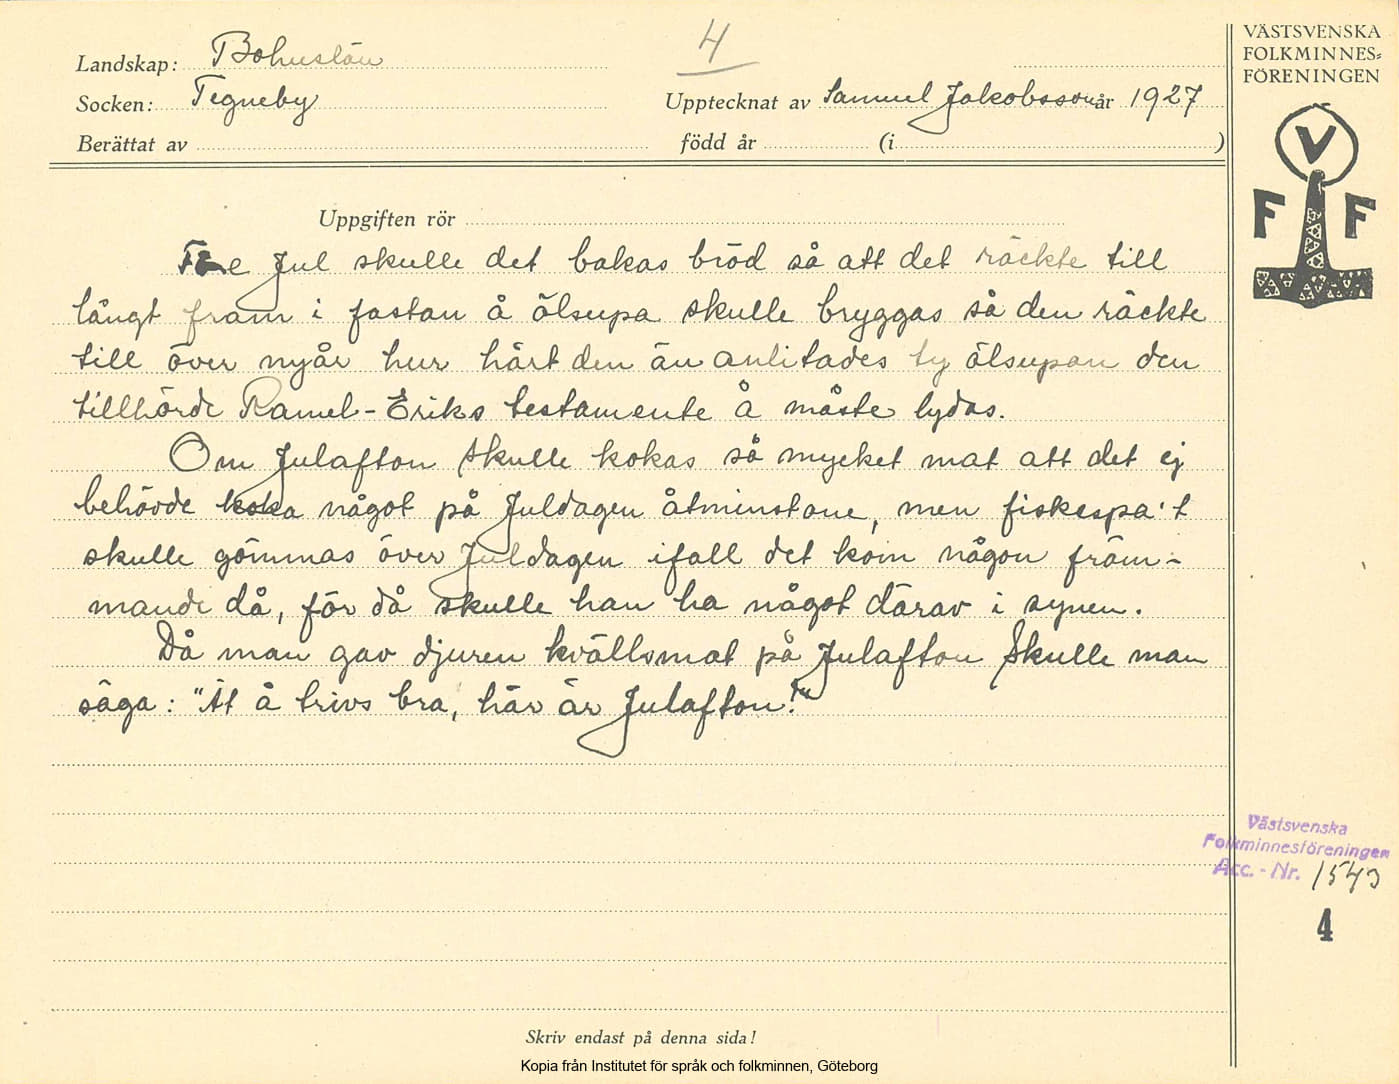 4
Landskap: Bohuslän
Socken: Tegneby
Upptecknat av Samuel Jakobsson år 1927
Berättat av född år (i )
VÄSTSVENSKA
FOLKMINNES=
FÖRENINGEN
V
F F
Uppgiften rör
Jul skulle det bakas bröd så att det räckte till
långt fram i fastan å ölsupa skulle bryggas så den räckte
till över nyår hur hårt den än anlitades ty ölsupan den
tillhörde Ramel-Eriks testamente å måste lydas.
Om Julafton skulle kokas så mycket mat att det ej
behövde koka något på Juldagen åtminstone, men fiskespa't
skulle gömmas över Juldagen ifall det kom någon främ-
mande då, för då skulle han ha något därav i synen.
Då man gav djuren kvällsmat på Julafton skulle man
säga: "Ät å trivs bra, här är Julafton!"
Västsvenska
Folkminnesföreningen
Acc.-Nr. 1543
4
Skriv endast på denna sida!
Kopia från Institutet för språk och folkminnen, Göteborg